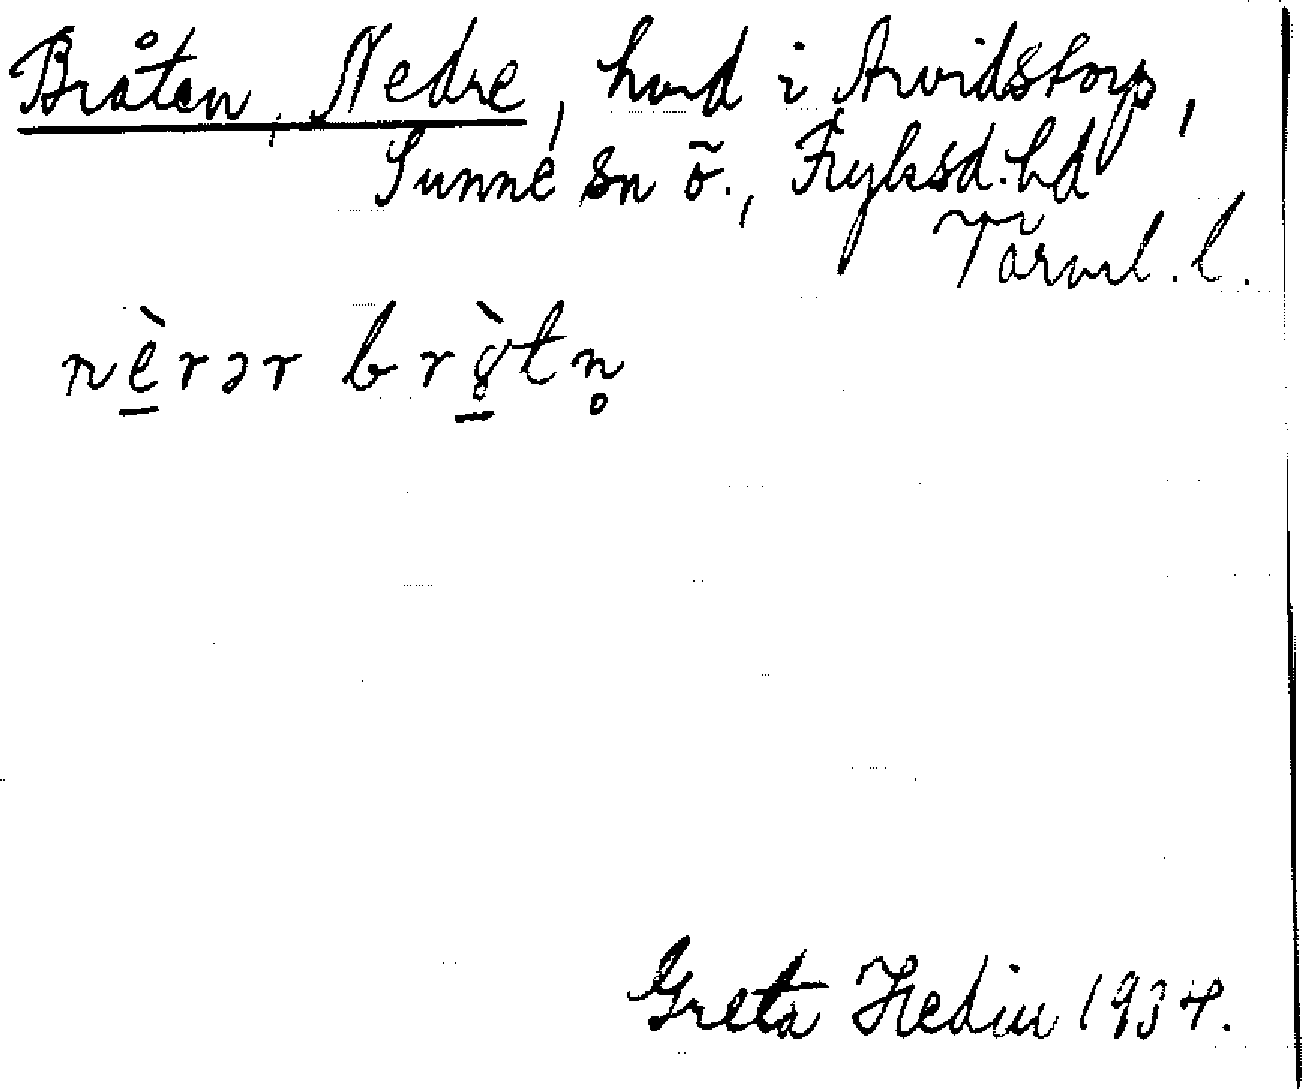 Bråten, Nedre, hmd i Arvidstorp,
Sunne sn ö., Fryksd. hd
Värml. l.
nè̠rər brò̠tn̥
Greta Hedin 1934.